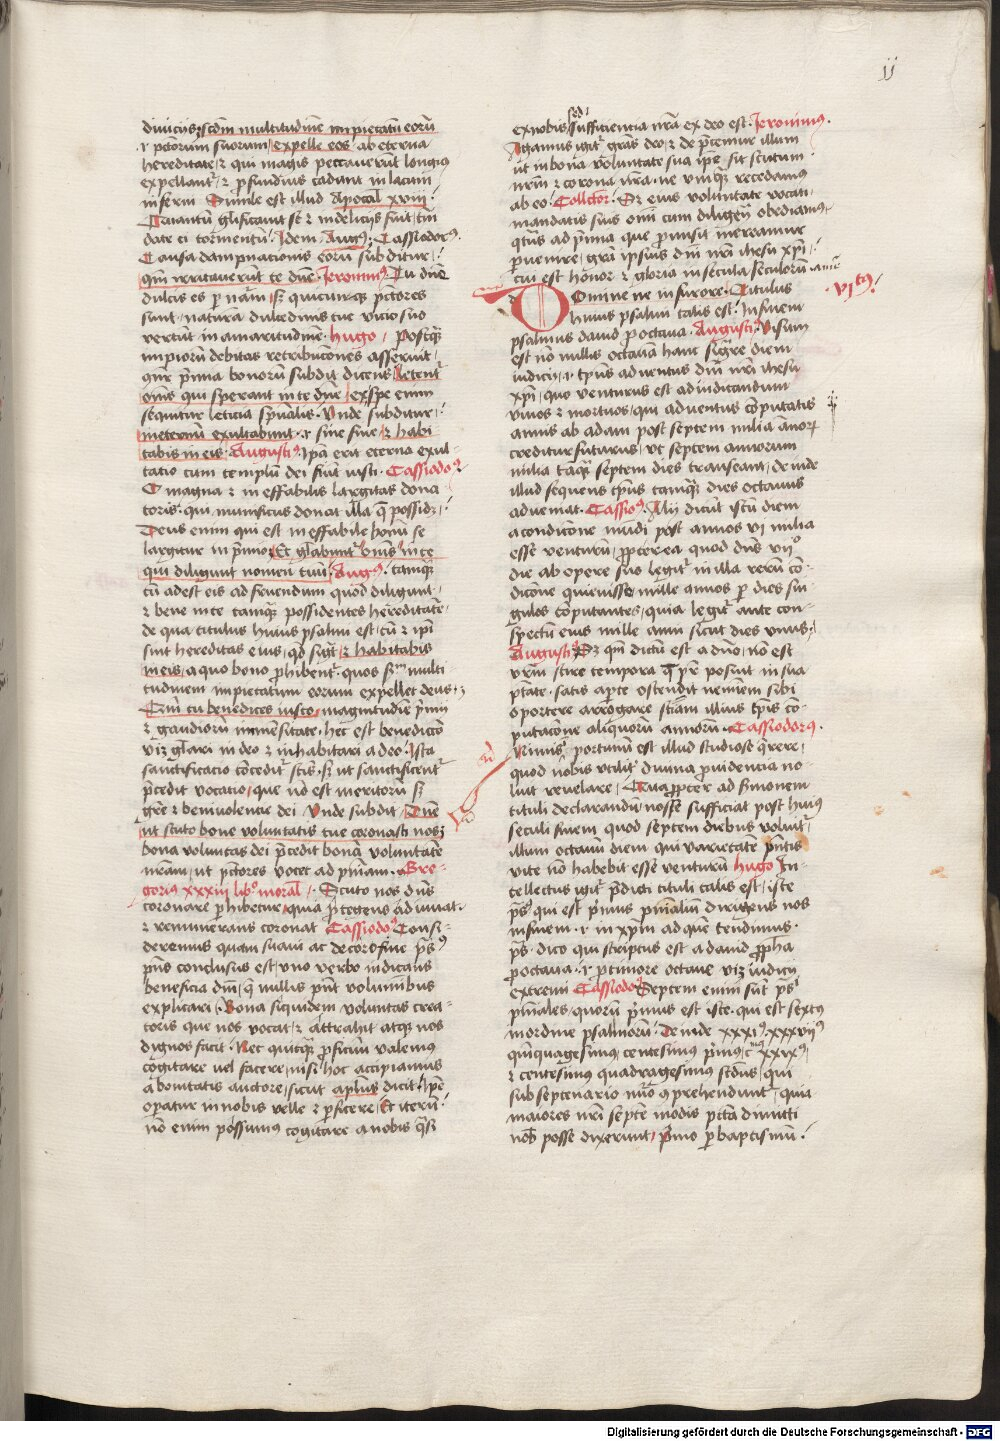 ij
diuiciis scdm multitudinē impietatū eorū
.i. pctorum suorum expelle eos ab eterna
hereditate ⁊ qui magis peccauerūt longius
expellantr ⁊ profundius cadant in lacum
inferni Simile est illud Apocal xviij
Quantū glificauit se ⁊ in delicijs fuit tm̄
date ei tormentū . Idem Augus Cassiodorus
Causa dampnacionis eorū subditur
qm̄ irritauerūt te dn̄e . Jeronimus . Tu dn̄e
dulcis es per nām sz quicunqz pctores
sunt natura dulcedinis tue vicio suo
vertūt in amaritudinē . hugo . Postqz
impiorū debitas retribucōnes asseruit
qm̄ prīma bonorū subdit dicens letentr
om̄s qui sperant in te dn̄e ex spe enim
sequitur leticia spūalis . Vnde subditur
in eternū exultabunt .i. sine fine ⁊ habi
tabis in eis . Augustis . Ipa erit eterna exul
tacio cum templū dei sunt iusti . Cassiodo
O magna ⁊ in effabilis largitas dona
toris . qui munificus donat illa que possidz
Deus enim qui est in effabile bonū se
largitur in prīmio Et glabuntr om̄s in te
qui diligunt nomen tuū . Augus . tamqz
cū adest eis ad fruendum quod diligunt
⁊ bene in te tamqz possidentes hereditatē
de qua titulus huius psalmi est cū ⁊ ipi
sint hereditas eius qd sigt ⁊ habitabis
in eis a quo bono prohibentr quos scdm multi
tudinem impietatum eorum expellet deus
Qm̄ tu benedices iusto magnitudinē prīmij
⁊ gaudiorū immensitate . hec est benedictō
viz glari in deo ⁊ inhabitari a deo . Ista
sanctificacio cōceditr sctis . sz ut sanctificentr
prcedit vocatio que nō est meritorū sz
gre ⁊ beniuolencie dei Vnde subdit Dn̄e
ut scuto bone voluntatis tue coronasti nos
bona voluntas dei prcedit bonā voluntatē
nr̄am ut pctores vocet ad pn̄iam . Gre
gorius xxxiij libo moral . Scuto nos dn̄s
coronare prohibetur quia protegens adiuuat
⁊ remunerans coronat Cassiodo Consi
deremus quam suaui ac decoro fine ps
pn̄s conclusus est vno verbo indicans
beneficia dn̄i que nullis pn̄t voluminibus
explicari . Bona siquidem voluntas crea
toris que nos vocat ⁊ attrahit atqz nos
dignos facit . Nec quicqz proficuū valemus
cogitare uel facere nisi hoc accipiamus
a bonitatis auctore sicut aplus dicit ipe
operatur in nobis velle ⁊ proficere . Et iterū
nō enim possumus cogitare a nobis qsi
ex nobis sed sufficientia nr̄a ex deo est . Jeronimus .
Agamus igitr grās deo ⁊ deprecemur illum
ut in bona voluntate sua ipe sit scutum
nr̄m ⁊ corona nr̄a . ne vmqz recedamus
ab eo . Collector . Et eius voluntate vocati
mandatis suis om̄i cum diligen obediamus
qtūs ad prīma que promisit mereamur
peruenire . grā ipsius dn̄i nr̄i ihesu xpi
cui est honor ⁊ gloria in secula seculorū amē
Domine ne in furore . Titulus
huius psalmi talis est . In finem
psalmus dauid pro octaua . Augusti . Visum
est nō nullis octauā hanc sigre diem
iudicij .i. tpus aduentus dn̄i nr̄i ihesu
xpi quo venturus est ad iudicandum
viuos ⁊ mortuos qui aduentus cōputatis
annis ab adam post septem milia annorum
creditur futurus ut septem annorum
milia tāqz septem dies transeant deinde
illud sequens tpus tamqz dies octauus
adueniat . Cassio . Alij dicūt istū diem
a condicōne mūdi post annos vi milia
esse venturū propterea quod dn̄s vijo
die ab opere suo legitr in illa rerū cō
dicōne quieuisse mille annos per dies sin
gulos cōputantes quia legitr ante con
spectū eius mille anni sicut dies vnus
Augusti Sz qm̄ dictū est a dn̄o nō est
vr̄m scire tempora que pr̄ posuit in sua
ptate . satis aprte ostendit neminem sibi
oportere arrogare sciam illius tpis cō
putacōne aliquorū annorū . Cassiodorus .
Nimis portunū est illud studiose qrere
quod nobis vtilitr diuina prouidencia no
luit reuelare . Qua propter ad sermonem
tituli declarandū nosse sufficiat post huius
seculi finem quod septem diebus voluitr
illum octauū diem qui varietatē prītis
vite nō habebit esse venturū hugo In
tellectus igitr predicti tituli talis est iste
ps qui est prīmus pn̄ialium dirigens nos
in finem .i. in xpm ad que tendimus
ps dico qui scriptus est a dauid propha
pro octaua .i. pro timore octaue viz iudicij
extremi Cassiodo Septem enim sūt ps
pn̄iales quorū prīmus est iste . qui est sextus
in ordine psalmorū . Deinde xxxius xxxvijus
quinquagesimus centesimus prīmus cmus xxixus
⁊ centesimus quadragesimus scdus qui
sub septenario nūo cōprehendunt quia
maiores nr̄i septē modis pctā dimitti
nob posse dixerunt primo per baptismū
vitus